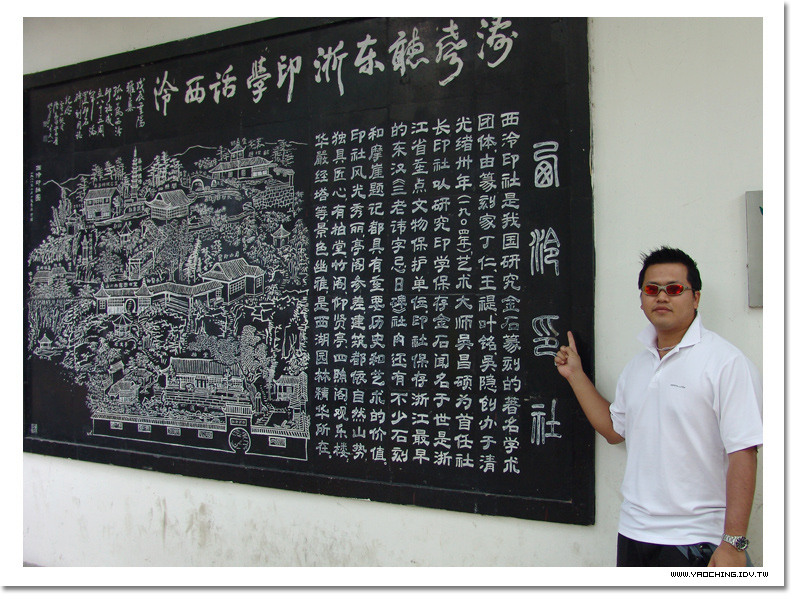 涛声听东浙印学话西泠
戊辰重阳
西泠印社
西泠印社是我国研究金石篆刻的著名学术
团体由篆刻家丁仁、王禔、叶铭、吴隐创办于清
光绪卅年(一九〇四年)艺术大师吴昌硕为首任社
长印社以研究印学保存金石闻名于世是浙
江省重点文物保护单位、印社保存浙江最早
的东汉《三老讳字忌日碑》社内还有不少石刻
和摩崖题记都具有重要历史和艺术的价值。
印社风光秀丽、亭阁参差建筑都依自然山势
独具匠心、有柏堂、竹阁、仰贤亭、四照阁、观乐楼、
华严经塔等景色幽雅是西湖园林精华所在
西泠印社图
WWW.YAOCHING.IDV.TW